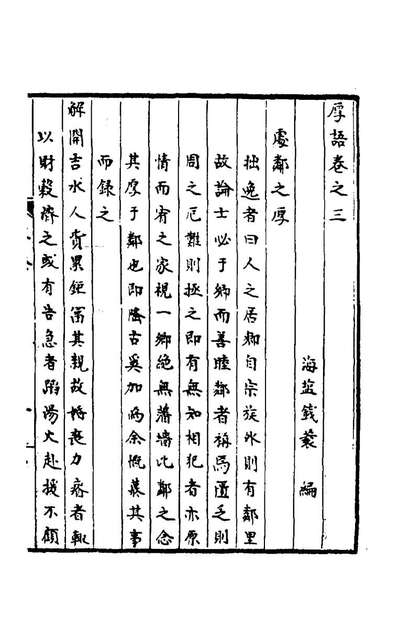 厚語卷之三
海塩錢蘘編
處鄰之厚
拙逸者曰人之居鄉自宗族外則有鄰里
故論士必于鄉而善睦鄰者稱焉匱乏則
周之厄難則拯之即有無知相犯者亦原
情而宥之家視一鄉絕無藩墻此鄰之念
其厚于鄰也即隆古奚加焉余慨慕其事
而錄之
解開吉水人貲累鉅富其親故婚喪力瘠者輙
以財穀濟之或有告急者蹈湯火赴援不顧